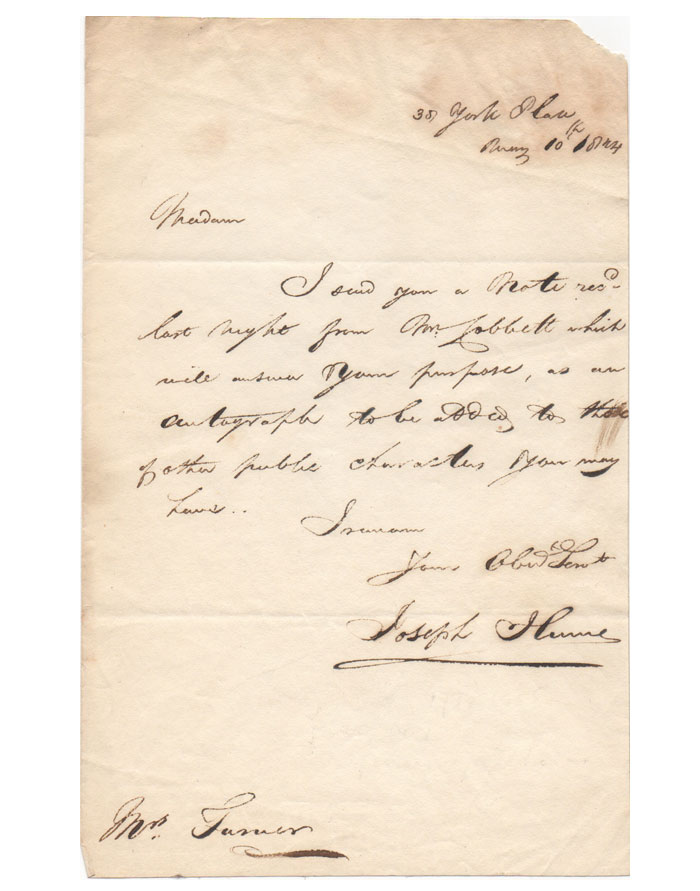 38 York Place
10th 1824
Madam
I send you a Note recd
last night from Mr Cobbett which
will answer your purpose, as an
autograph to be added to those
of other public characters you may
have..
I remain
Your Obedt Servt
Joseph Hume
Mrs Turner